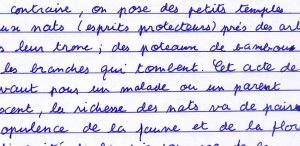 contraire, on pose des petits temples
aux nats (esprits protecteurs) près des
s leur tronc ; des poteaux de bambou
les branches qui tombent. Cet acte de
vaut pour un malade ou un parent
scent, la richesse des nats va de pair
opulence de la faune et de la flor